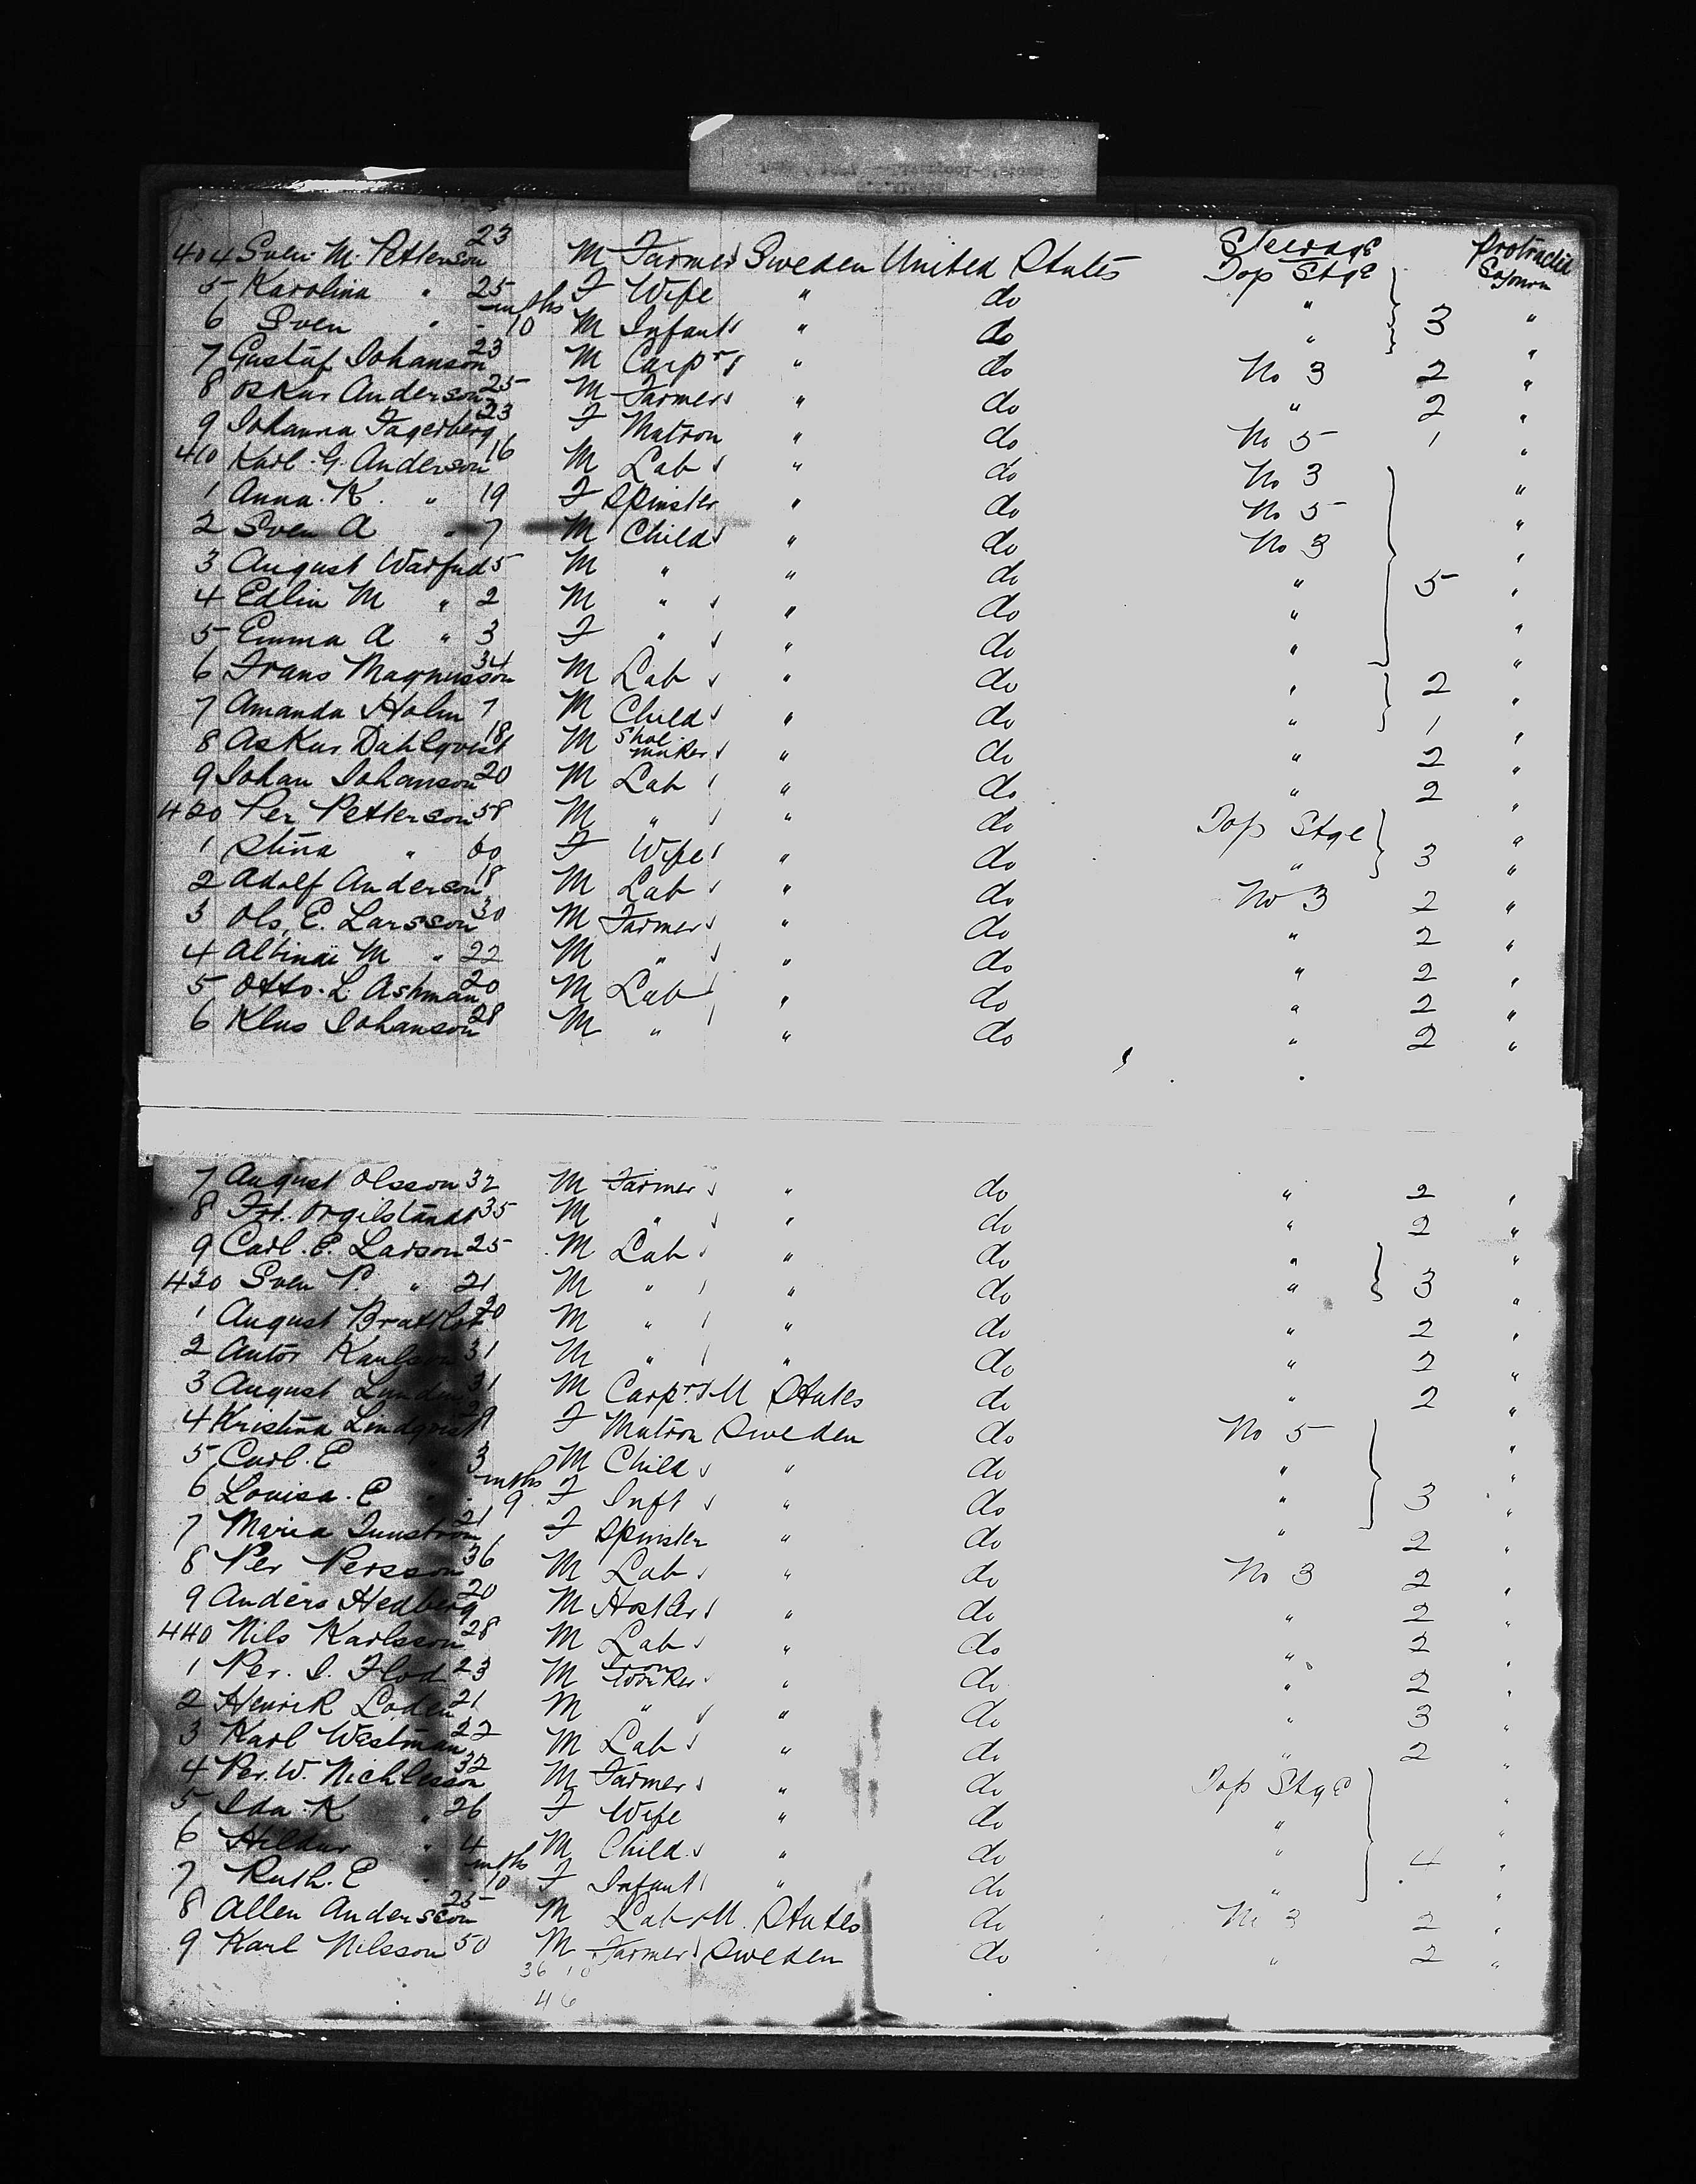 Steerage
404 Sven M. Petterson 23 M Farmer Sweden United States Top Stge Protracted Sojourn
5 Karolina " 25 F Wife " do " "
6 Sven " mths 10 M Infant " do " 3 "
7 Gustaf Johanson 23 M Carpr " do No 3 2 "
8 Oskar Anderson 25 M Farmer " do " 2 "
9 Johanna Fagerberg 23 F Matron " do No 5 1 "
410 Karl G. Anderson 16 M Lab " do No 3 "
1 Anna K. " 19 F Spinster " do No 5 "
2 Sven A " 7 M Child " do No 3 "
3 August Warfud 5 M " " do " 5 "
4 Edlin M " 2 M " " do " "
5 Emma A " 3 F " " do " "
6 Frans Magnusson 34 M Lab " do " 2 "
7 Amanda Holm 7 M Child " do " 1 "
8 Askur Dahlqvist 18 M Shoe maker " do " 2 "
9 Johan Johanson 20 M Lab " do " 2 "
420 Per Petterson 58 M " " do Top Stge "
1 Stina " 60 F Wife " do " 3 "
2 Adolf Anderson 18 M Lab " do No 3 2 "
3 Ols. E. Larsson 30 M Farmer " do " 2 "
4 Albinai M " 22 M " " do " 2 "
5 Otto. L. Ashman 20 M Lab " do " 2 "
6 Klas Johanson 28 M " " do " 2 "
7 August Olsson 32 M Farmer " do " 2 "
8 35 M " " do " 2 "
9 Carl. E. Larson 25 M Lab " do " "
430 Sven P. " 21 M " " do " 3 "
1 August 20 M " " do " 2 "
2 Antor Karlson 31 M " " do " 2 "
3 August 31 M Carpr U States do " 2 "
4 Kristina Lindqvist 29 F Matron Sweden do No 5 "
5 Carl. E " 3 M Child " do " "
6 Louisa. E " mths 9 F Inft " do " 3 "
7 Maria 21 F Spinster " do " 2 "
8 Per Persson 36 M Lab " do No 3 2 "
9 Anders Hedberg 20 M Hostler " do " 2 "
440 Nils Karlsson 28 M Lab " do " 2 "
1 Per. I. Flod 23 M Iron worker " do " 2 "
2 Henrik Loden 21 M " " do " 3 "
3 Karl Westman 22 M Lab " do " 2 "
4 Per. W. Nichlesson 32 M Farmer " do Top Stge "
5 Ida. K " 26 F Wife " do " "
6 Hildur " 4 M Child " do " 4 "
7 Ruth. E " mths 10 F Infant " do " "
8 Allen Anderson 25 M Lab U. States do No 3 2 "
9 Karl Nilsson 50 M Farmer Sweden do " 2 "
36 10
46